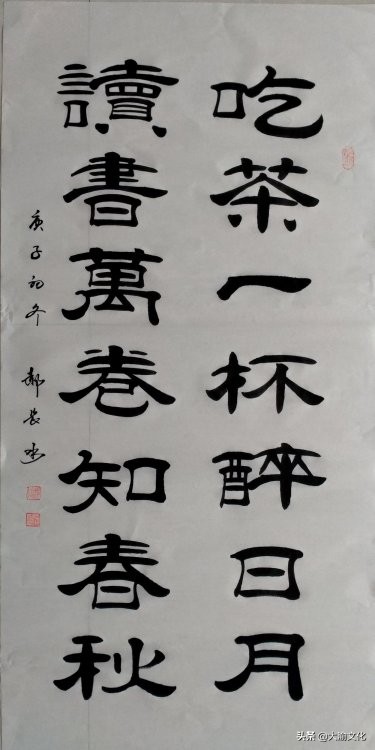 吃茶一杯醉日月
讀書萬卷知春秋
庚子初冬 郝長
头条@大渝文化